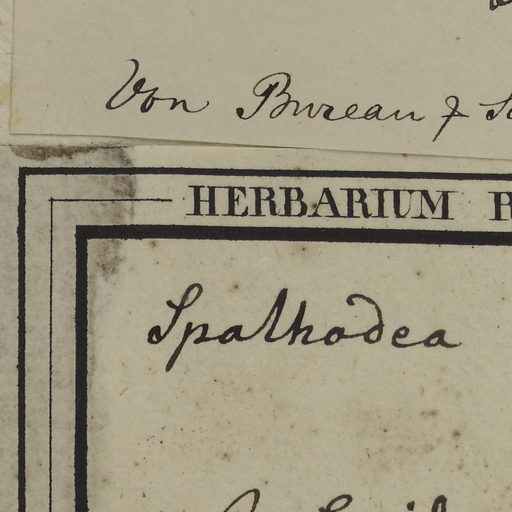 Von Bureau &
HERBARIUM
Spathodea